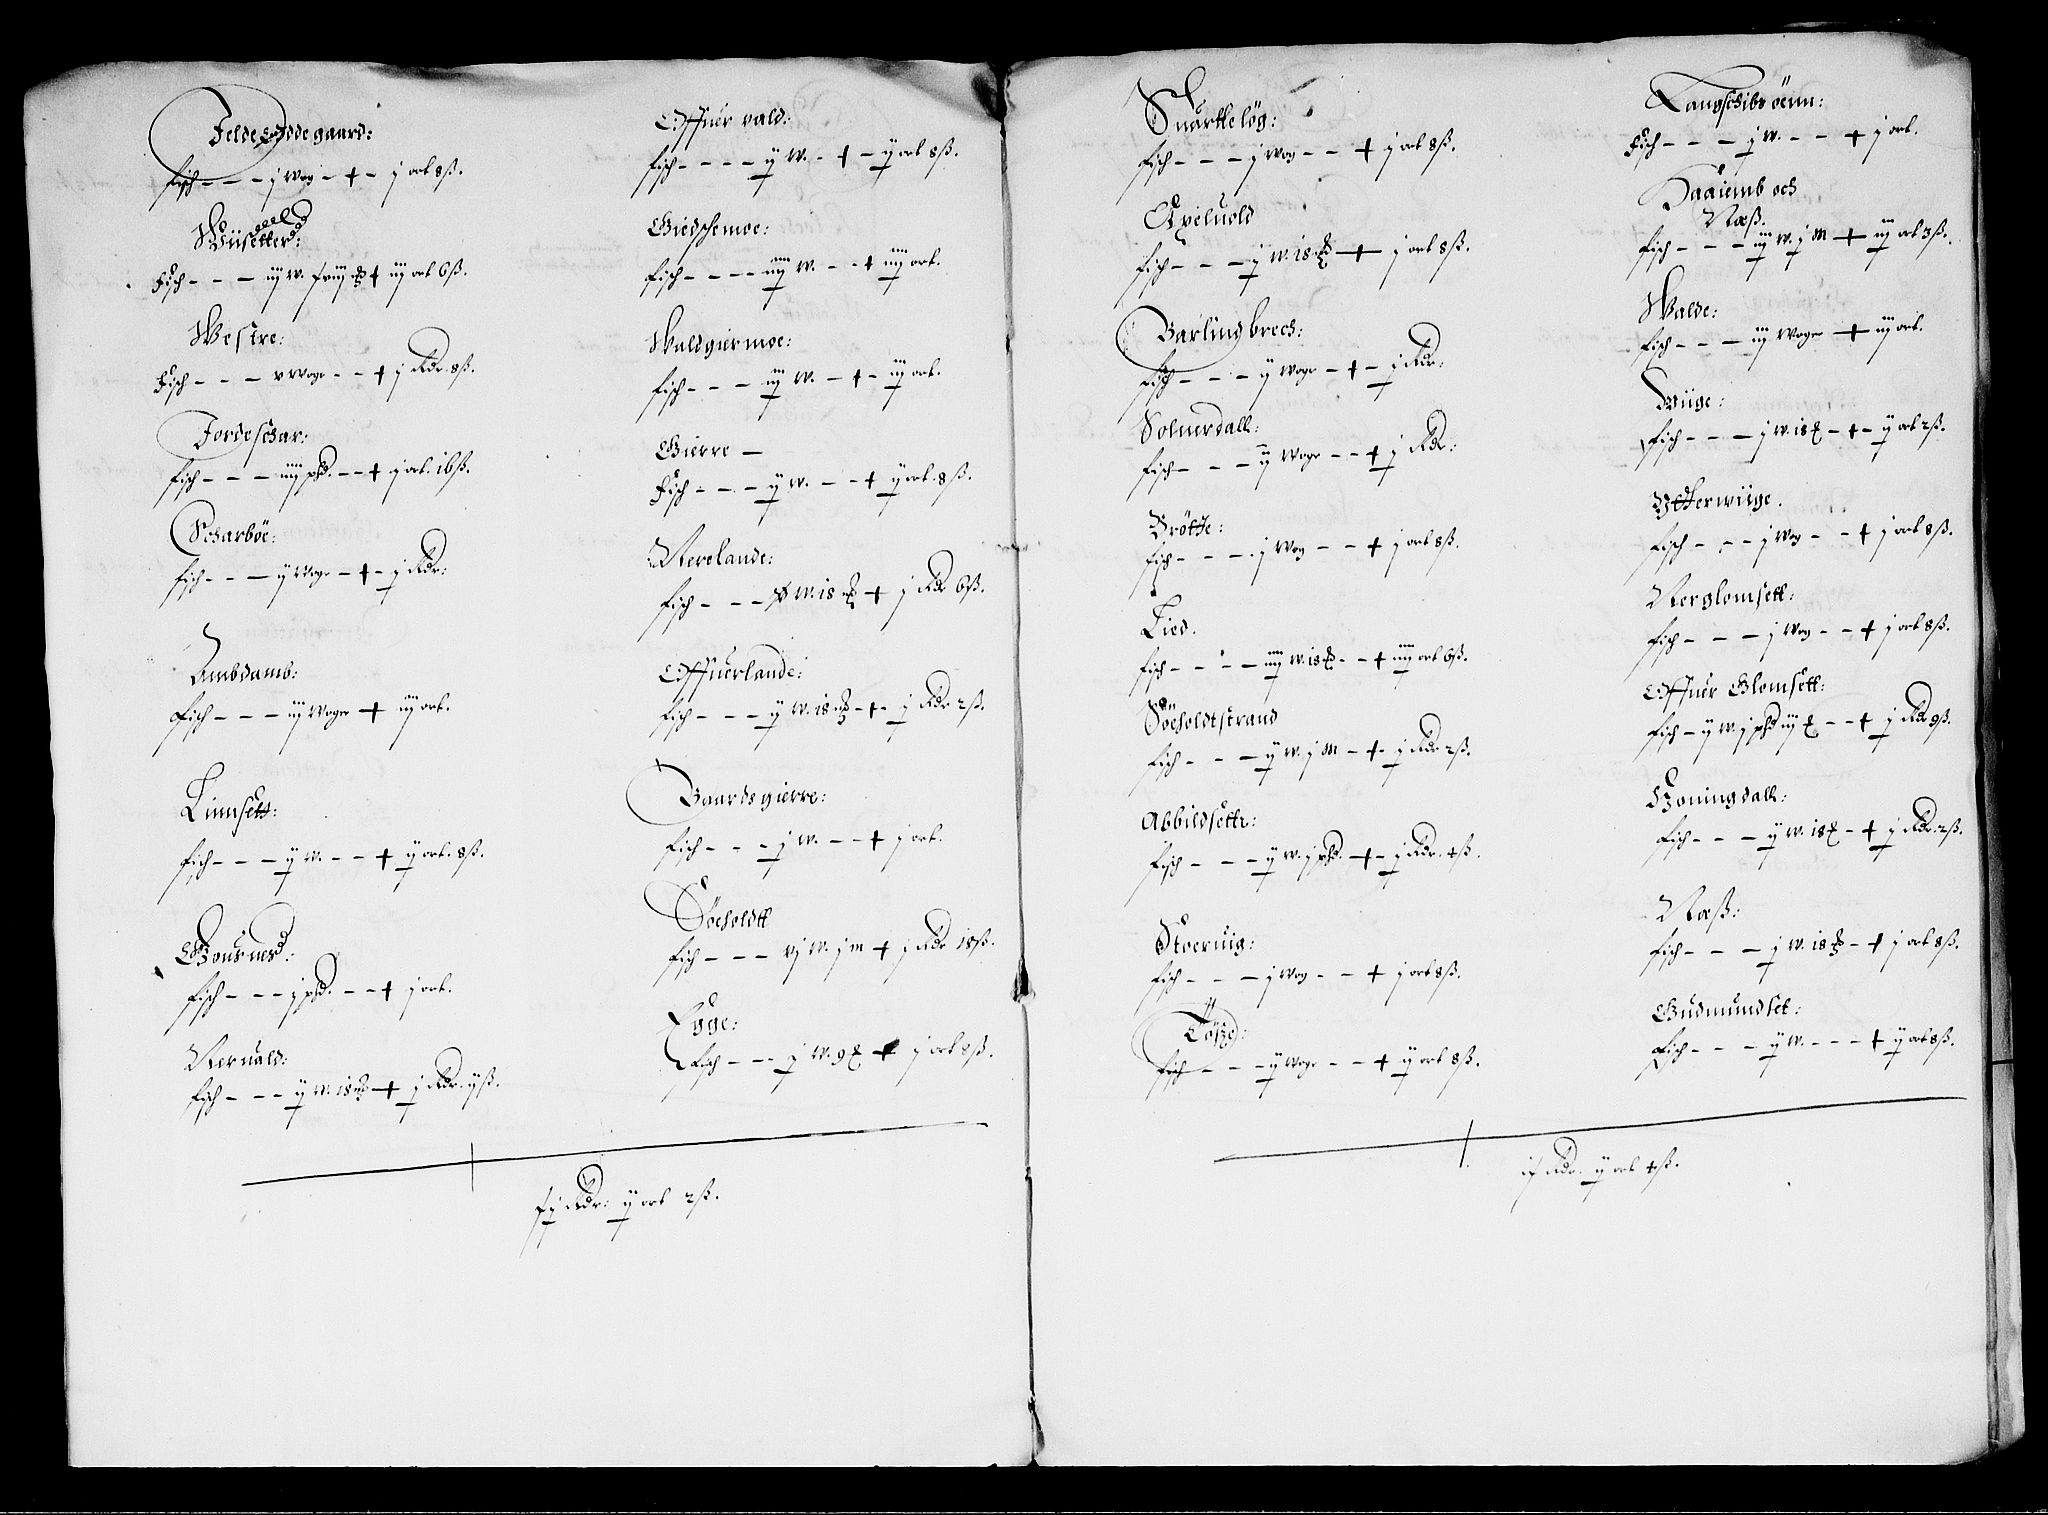 Jelde Ødegaard:
fisch - - - j wog - + - j ort 8 ß.
Wiisetter:
Fisch - - - iij w. ort 6 ß.
Westre:
Fisch - - - v woge - - + j Rdr. 8 ß.
Jordeschar:
fisch - - - iiij phd. - - + j ort. 16 ß.
Scharböe:
fisch - - - ij Woge - + - j Rdr:
Ambdamb:
fisch - - - iij Woger + iij ort.
Linnsett:
fisch - - - ij w. - - + ij ort. 8 ß.
fisch - - - j phd. - - + j ort.
Neruald:
fisch - - - ij w. 18 + j Rdr. ij ß.
Offuer vald:
fisch - - - - ij w. - + - ij ort 8 ß.
Giedschemoe:
fisch - - - - iiij w. - - + iiij ort.
Waldgiermoe:
fisch - - - iiij w. - + - iiij ort.
Gierre -
Fisch - - - ij w. - - + ij ort. 8 ß.
Nerelande:
fisch - - - w. 18 + j Rdr 6 ß.
Offuerlande:
fisch - - - ij w. 18 - + - j Rdr 2 ß.
Baardsgierre:
fisch - - - j w. - - + j ort.
Söeholdtt
fisch - - - vj w. j m + j Rdr 18 ß.
Egge:
Fisch - - - j w. 9 + j ort 8 ß.
fj Rdr: ij ort 2 ß.
Suartteløg:
fisch - - - j wog - - + j ort 8 ß.
Axeluold
fisch - - - j w. 18 + j ort 8 ß.
Barlindbrech:
fisch - - - ij woge - + - j Rdr:
Soluerdall:
fisch - - - ij woge - - + j Rdr:
Bröste:
fisch - - - j wog - - + j ort 8 ß.
Lied.
fisch - - - - iiij w. 18 - - + iiij ort 6 ß.
Söeholdtstrand
fisch - - - ij w. j m - + - j Rdr 2 ß.
Abbildsette:
fisch - - - ij w. j phd. - + - j Rdr. 4 ß.
Stoeruig:
fisch - - - j wog - - + j ort 8 ß.
fisch - - - ij woge - - + ij ort 8 ß.
Langschibsöenn:
Fisch - - - j w. - - + j ort.
Haaiemb och
Næß.
fisch - - - iij w. j m + iij ort 3 ß.
Walde:
fisch - - - iij woger + iij ort.
Wiige:
fisch - - - j w. 18 - + - ij ort 2 ß.
Ytterwiige.
fisch - - - j wog - - + j ort 8 ß.
Nerglemsett:
fisch - - - j wog - - + j ort 8 ß.
Offuer Glemsett:
fisch - ij w. j phd iij - - + j Rdr 9 ß.
Honingdall:
fisch - - - ij w. 18 - + j Rdr. 2 ß.
Næß:
fisch - - - j w. 18 - + j ort 8 ß.
Gudmundset:
fisch - - - ij w. - - - + ij ort 8 ß.
Rdr. ij ort 4 ß.